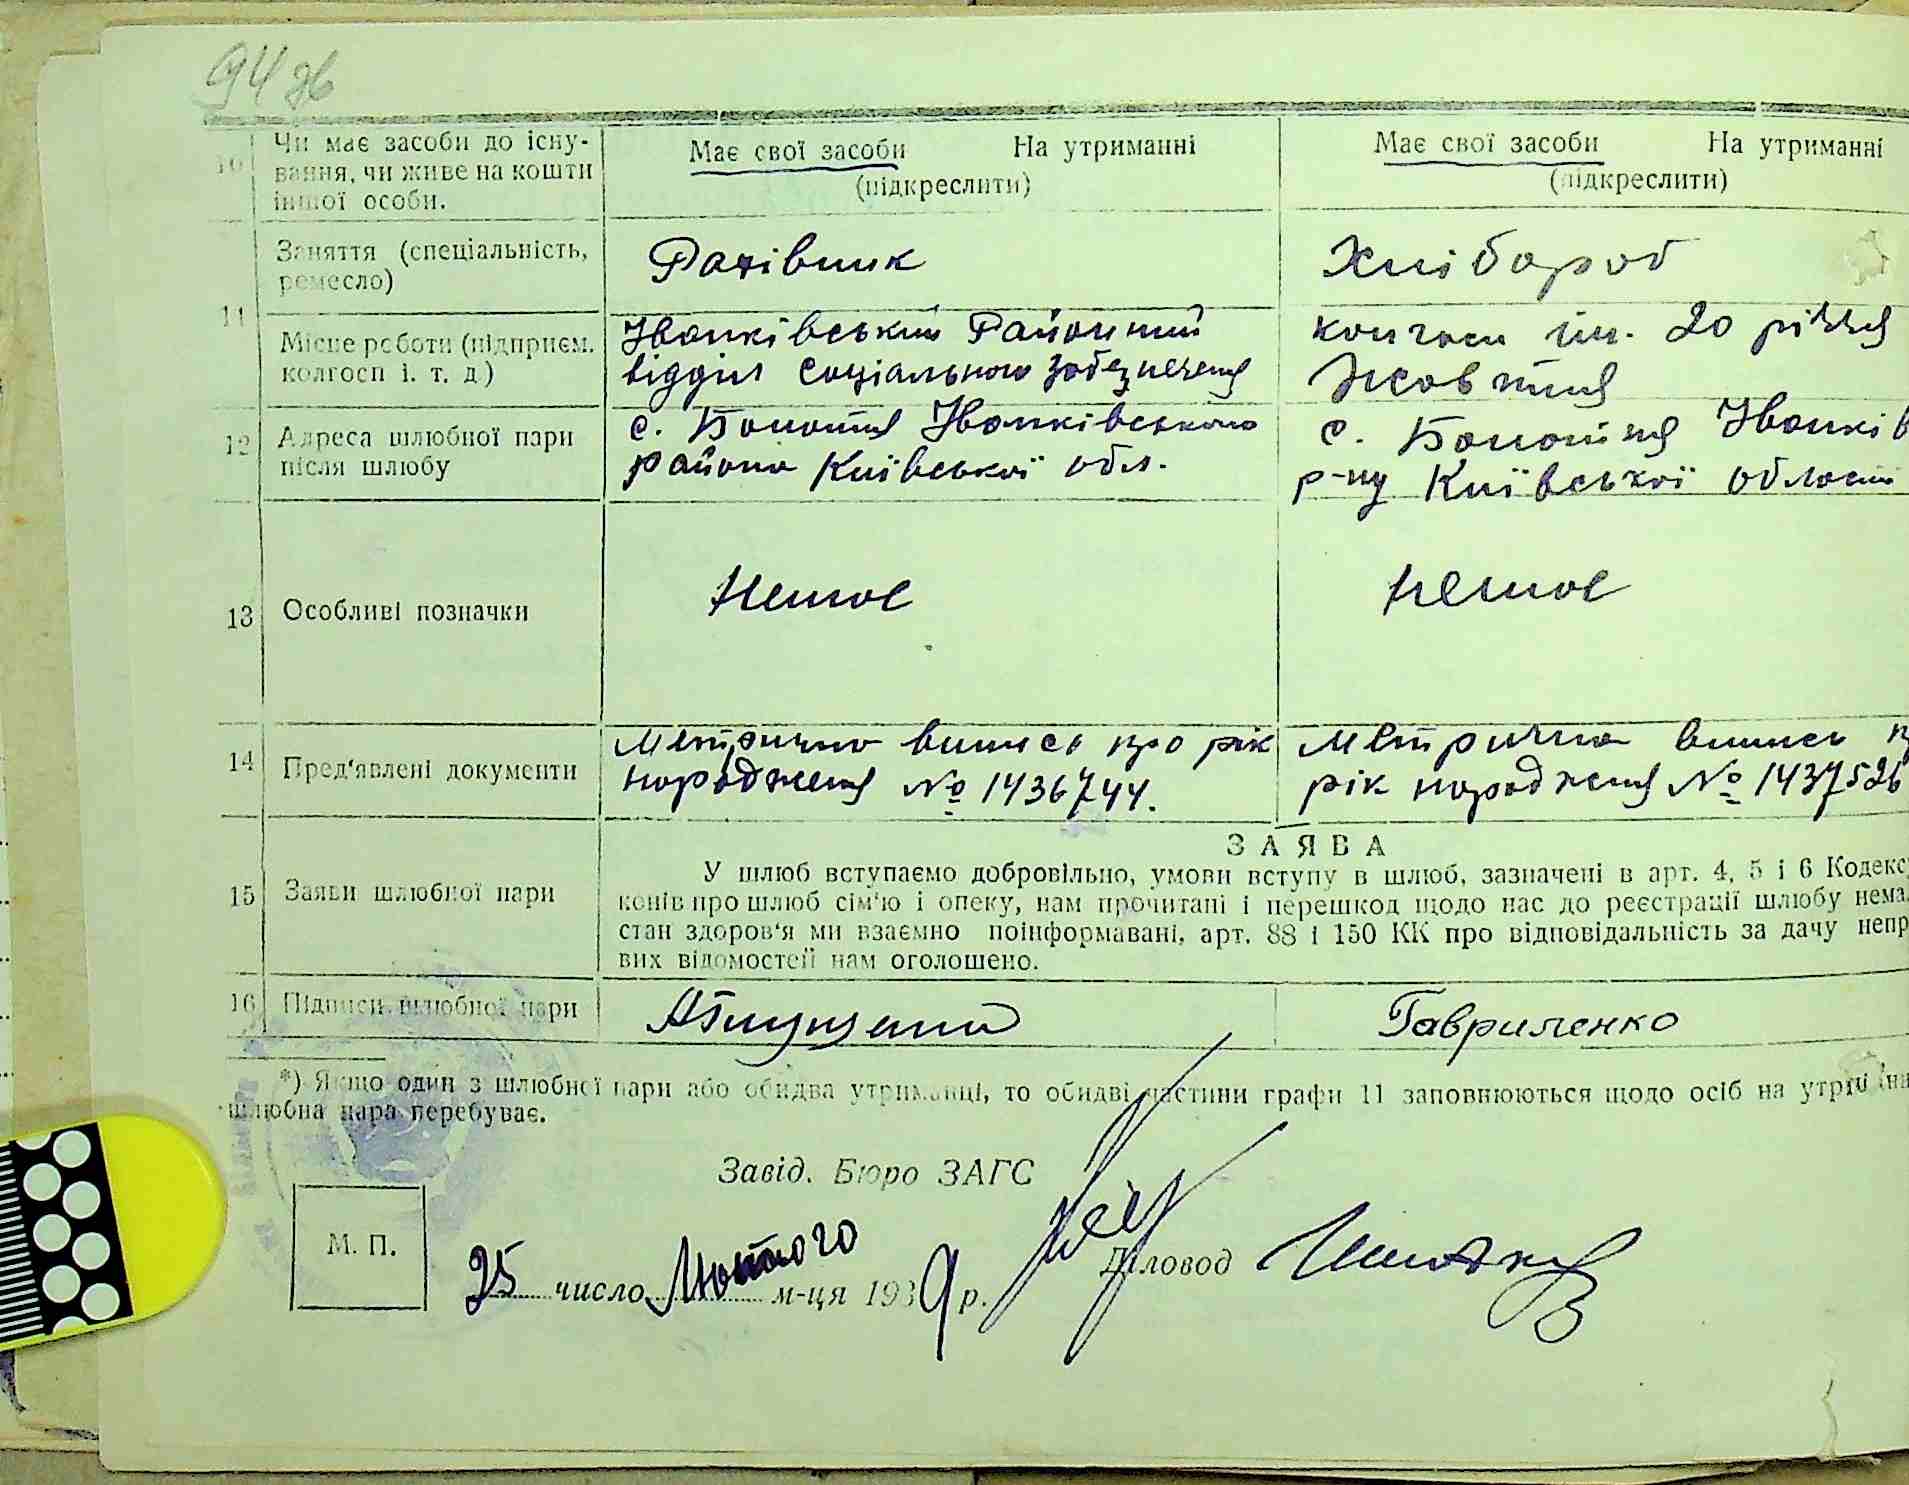 94 зв
10 Чи має засоби до існу-
вання, чи живе на кошти
іншої особи.
Має свої засоби На утриманні
(підкреслити)
Має свої засоби На утриманні
(підкреслити)
11
Заняття (спеціальність,
ремесло)
Рахівник
Хлібороб
Місце роботи (підприєм.
колгосп і. т. д)
Іванківський Районний
відділ соціального забезпечення
колгосп ім. 20 річчя
Жовтня
12 Адреса шлюбної пари
після шлюбу
с. Болотня Іванківського
района Київської обл.
с. Болотня Іванків
р-ну Київської області
13 Особливі позначки
Немає
Немає
14 Пред'явлені документи
Метрична випись про рік
народження № 1436744.
Метрична випись п
рік народження № 1437526
15 Заяви шлюбної пари
ЗАЯВА
У шлюб вступаємо добровільно, умови вступу в шлюб, зазначені в арт. 4, 5 і 6 Кодексу
конів про шлюб сім'ю і опеку, нам прочитані і перешкод щодо нас до реєстрації шлюбу нема.
стан здоров'я ми взаємно поінформавані, арт. 88 і 150 КК про відповідальність за дачу непр
вих відомостей нам оголошено.
16 Підписи шлюбної пари
Гавриленко
*) Якщо один з шлюбної пари або обидва утриманці, то обидві частини графи 11 заповнюються щодо осіб на утри
шлюбна пара перебуває.
Завід. Бюро ЗАГС
М. П.
Діловод
25 число Лютого м-ця 1939 р.